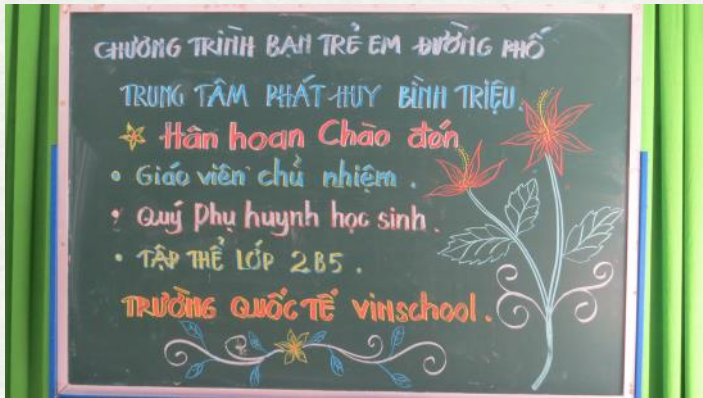 CHƯƠNG TRÌNH BẠN TRẺ EM ĐƯỜNG PHỐ
TRUNG TÂM PHÁT HUY BÌNH TRIỆU.
Hân hoan Chào đón
• Giáo viên chủ nhiệm.
• Quý Phụ huynh học sinh.
• TẬP THỂ LỚP 2B5.
TRƯỜNG QUỐC TẾ vinschool.